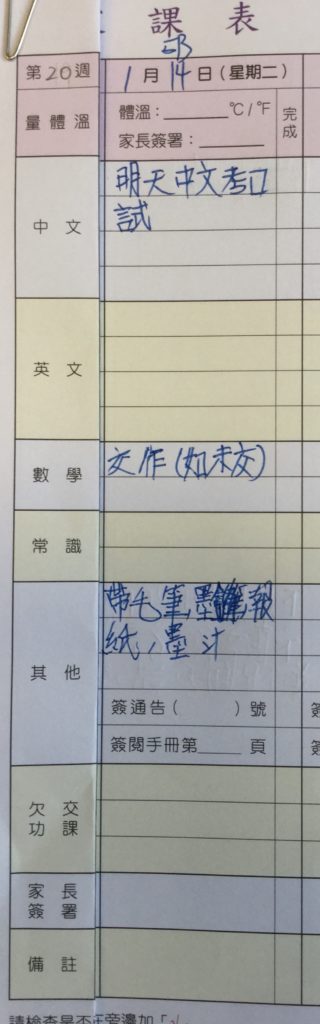 課表
EB
第20週 1月14日(星期二)
量體溫 體溫：______ °C/°F 完成
家長簽署：______
中文 明天中文考口
試
英文
數學 交作(如未交)
常識
其他 帶毛筆,墨 報
紙,墨汁
簽通告( )號
簽閱手冊第____頁
欠交功課
家長簽署
備註
請檢查是否在旁邊加「